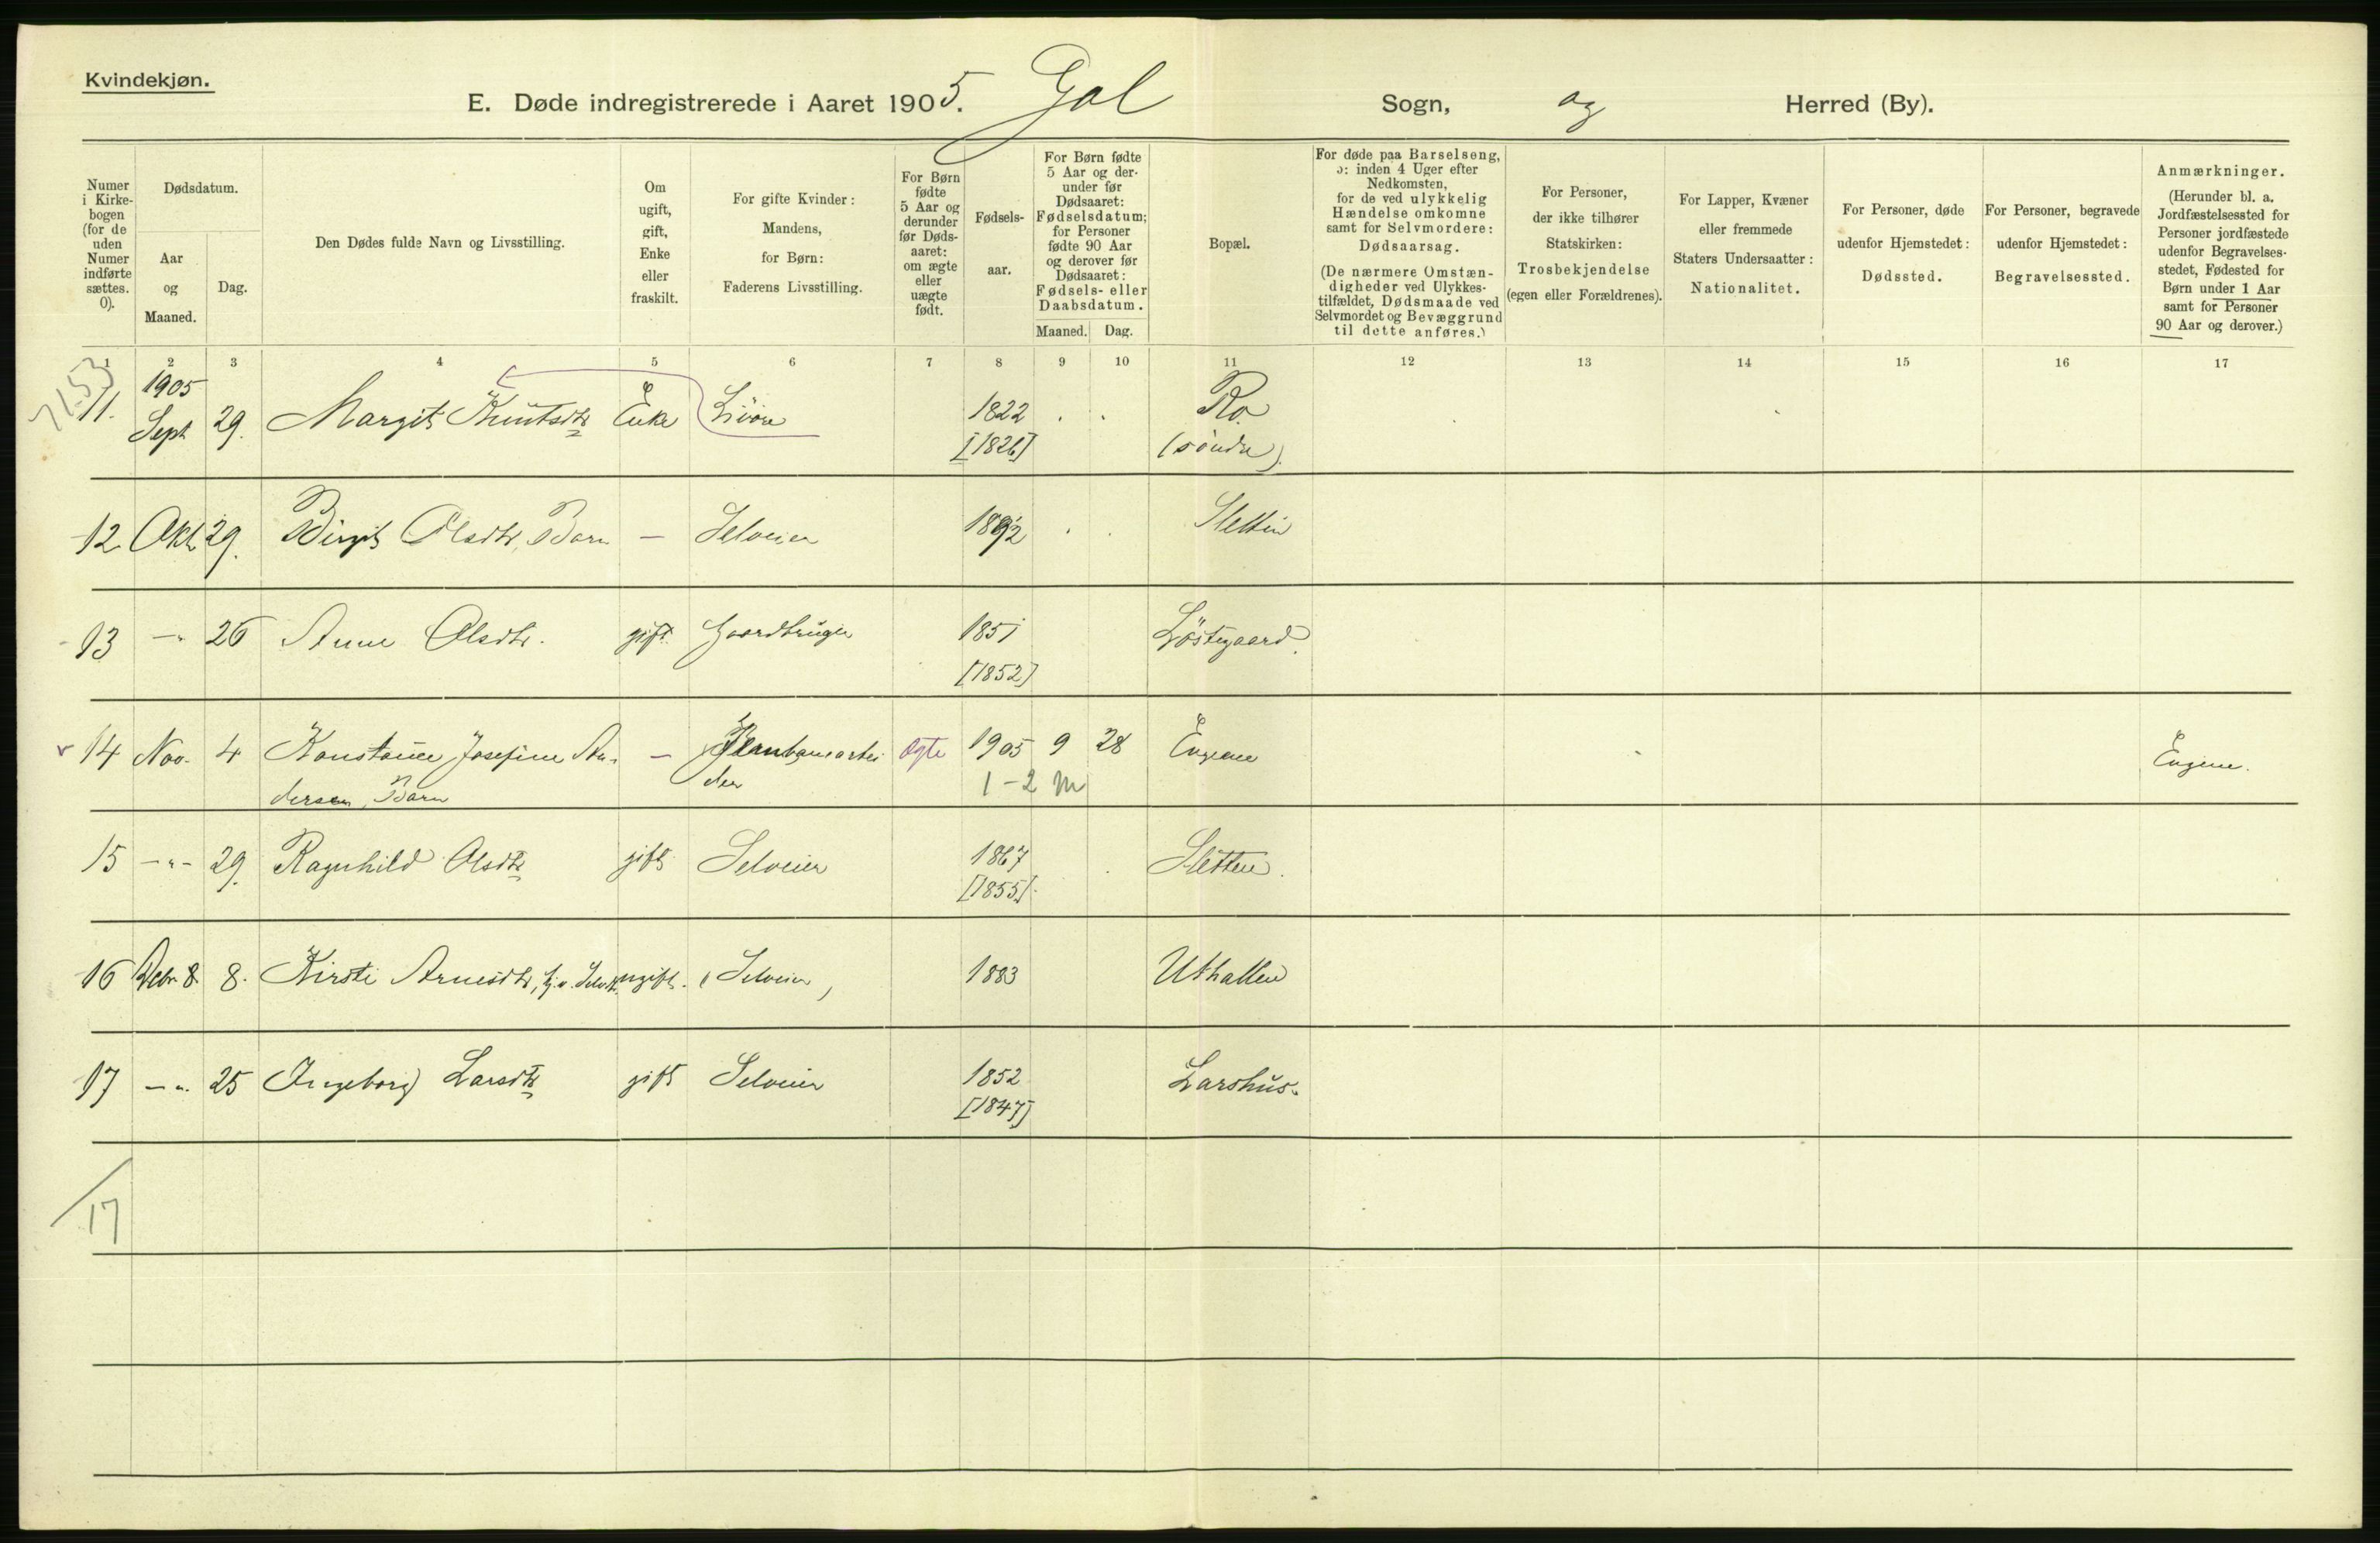 Kvindekjøn.
E. Døde indregistrerede i Aaret 1905. Gol Sogn, og Herred (By).
Numer i Kirkebogen (for de uden Numer indførte sættes. 0).
Dødsdatum.
Aar og Maaned.
Dag.
Den Dødes fulde Navn og Livsstilling.
Om ugift, gift, Enke eller fraskilt.
For gifte Kvinder: Mandens, for Børn: Faderens Livsstilling.
For Børn fødte 5 Aar og derunder før Dødsaaret: om ægte eller uægte født.
Fødselsaar.
For Børn fødte 5 Aar og derunder før Dødsaaret: Fødselsdatum; for Personer fødte 90 Aar og derover før Dødsaaret: Fødsels- eller Daabsdatum.
Maaned. Dag.
Bopæl.
For døde paa Barselseng, ɔ: inden 4 Uger efter Nedkomsten, for de ved ulykkelig Hændelse omkomne samt for Selvmordere: Dødsaarsag.
(De nærmere Omstændigheder ved Ulykkestilfældet, Dødsmaade ved Selvmordet og Bevæggrund til dette anføres.)
For Personer, der ikke tilhører Statskirken: Trosbekjendelse (egen eller Forældrenes).
For Lapper, Kvæner eller fremmede Staters Undersaatter: Nationalitet.
For Personer, døde udenfor Hjemstedet: Dødssted.
For Personer, begravede udenfor Hjemstedet: Begravelsessted.
Anmærkninger.
(Herunder bl. a. Jordfæstelsessted for Personer jordfæstede udenfor Begravelsesstedet, Fødested for Børn under 1 Aar samt for Personer 90 Aar og derover.)
1 2 3 4 5 6 7 8 9 10 11 12 13 14 15 16 17
7153
1905
11. Sept 29. Margit Knutsdtr Enke 1822 Ro
[1826] (söndre).
12 Okt. 29. Birgit Olsdtr, Barn — Selveier 1892 Sletten
13 —„ 26 Anne Olsdtr. gift Gaardbruger 1851 Löstegaard.
[1852]
14 Nov. 4 Konstance Josefine An- — Jernbanearbei ægte 1905 9 28 Engene Engene.
dersen, Barn der 1-2 M
15 —„— 29. Ragnhild Olsdtr gift Selveier 1867 Sletten.
[1855].
16 Debr. 8. 8. Kirsti Arnesdtr, ugift. (Selveier) 1883 Uthallen
17 —„. 25 Ingeborg Larsdtr gift Selveier 1852 Larshus.
[1847]
/17